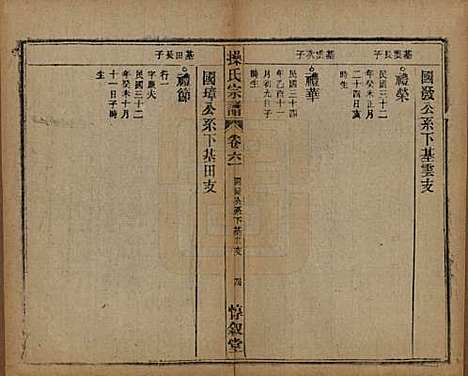 國發公系下基雲支
基雲長子
禮榮
民國三十二
年癸未正月
二十四日亥
時生
基雲次子
禮華
民國三十四
年乙酉十一
月初九日子
時生
操氏宗譜
卷六一
四
惇叙堂
基田長子
禮節
行一
字慶火
民國三十二
年癸未十月
十一日子時
生
國璋公系下基田支